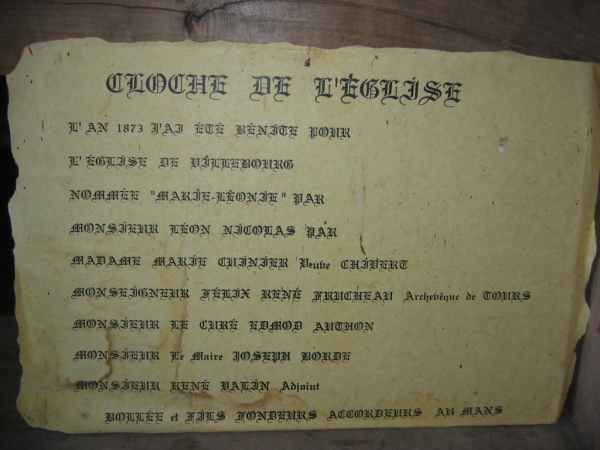 CLOCHE DE L'ÉGLISE
L'AN 1873 J'AI ÉTÉ BÉNITE POUR
L'ÉGLISE DE VILLEBOURG
NOMMÉE "MARIE-LÉONIE" PAR
MONSIEUR LÉON NICOLAS PAR
MADAME MARIE CHINIER Veuve CHIVERT
MONSEIGNEUR FÉLIX RENÉ FRUCHEAU Archevêque de TOURS
MONSIEUR LE CURÉ EDMOD AUTHON
MONSIEUR Le Maire JOSEPH BORDE
MONSIEUR RENÉ VALIN Adjoint
BOLLÉE et FILS FONDEURS ACCORDEURS AU MANS